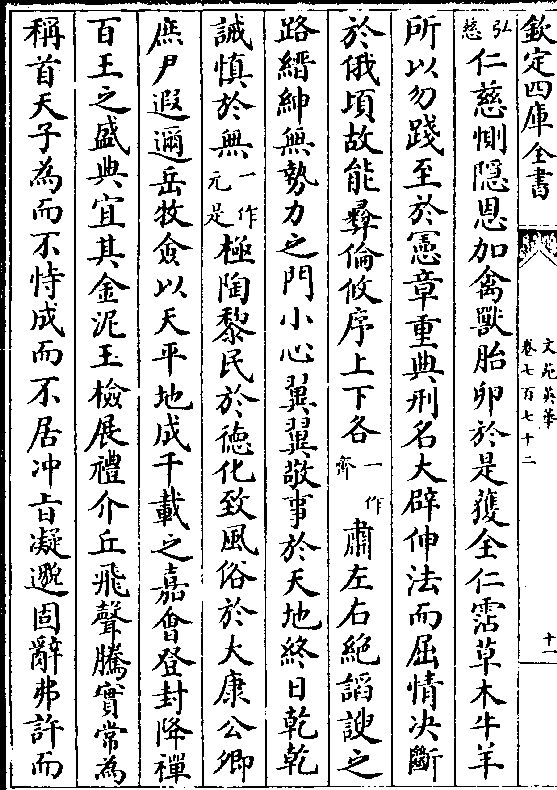 欽定四庫全書
文苑英華
卷七百七十二
十一
弘慈仁慈惻隱恩加禽獸胎卵於是獲全仁霑草木牛羊
所以勿踐至於憲章重典刑名大辟伸法而屈情决斷
於俄頃故能彝倫攸序上下各一作齊肅左右絶諂諛之
路縉紳無勢力之門小心翼翼敬事於天地終日乾乾
誡慎於無一作元是極陶黎民於德化致風俗於大康公卿
庶尹遐邇岳牧僉以天平地成千載之嘉會登封降禪
百王之盛典宜其金泥玉檢展禮介丘飛聲騰實常為
稱首天子為而不恃成而不居冲旨凝邈固辭弗許而